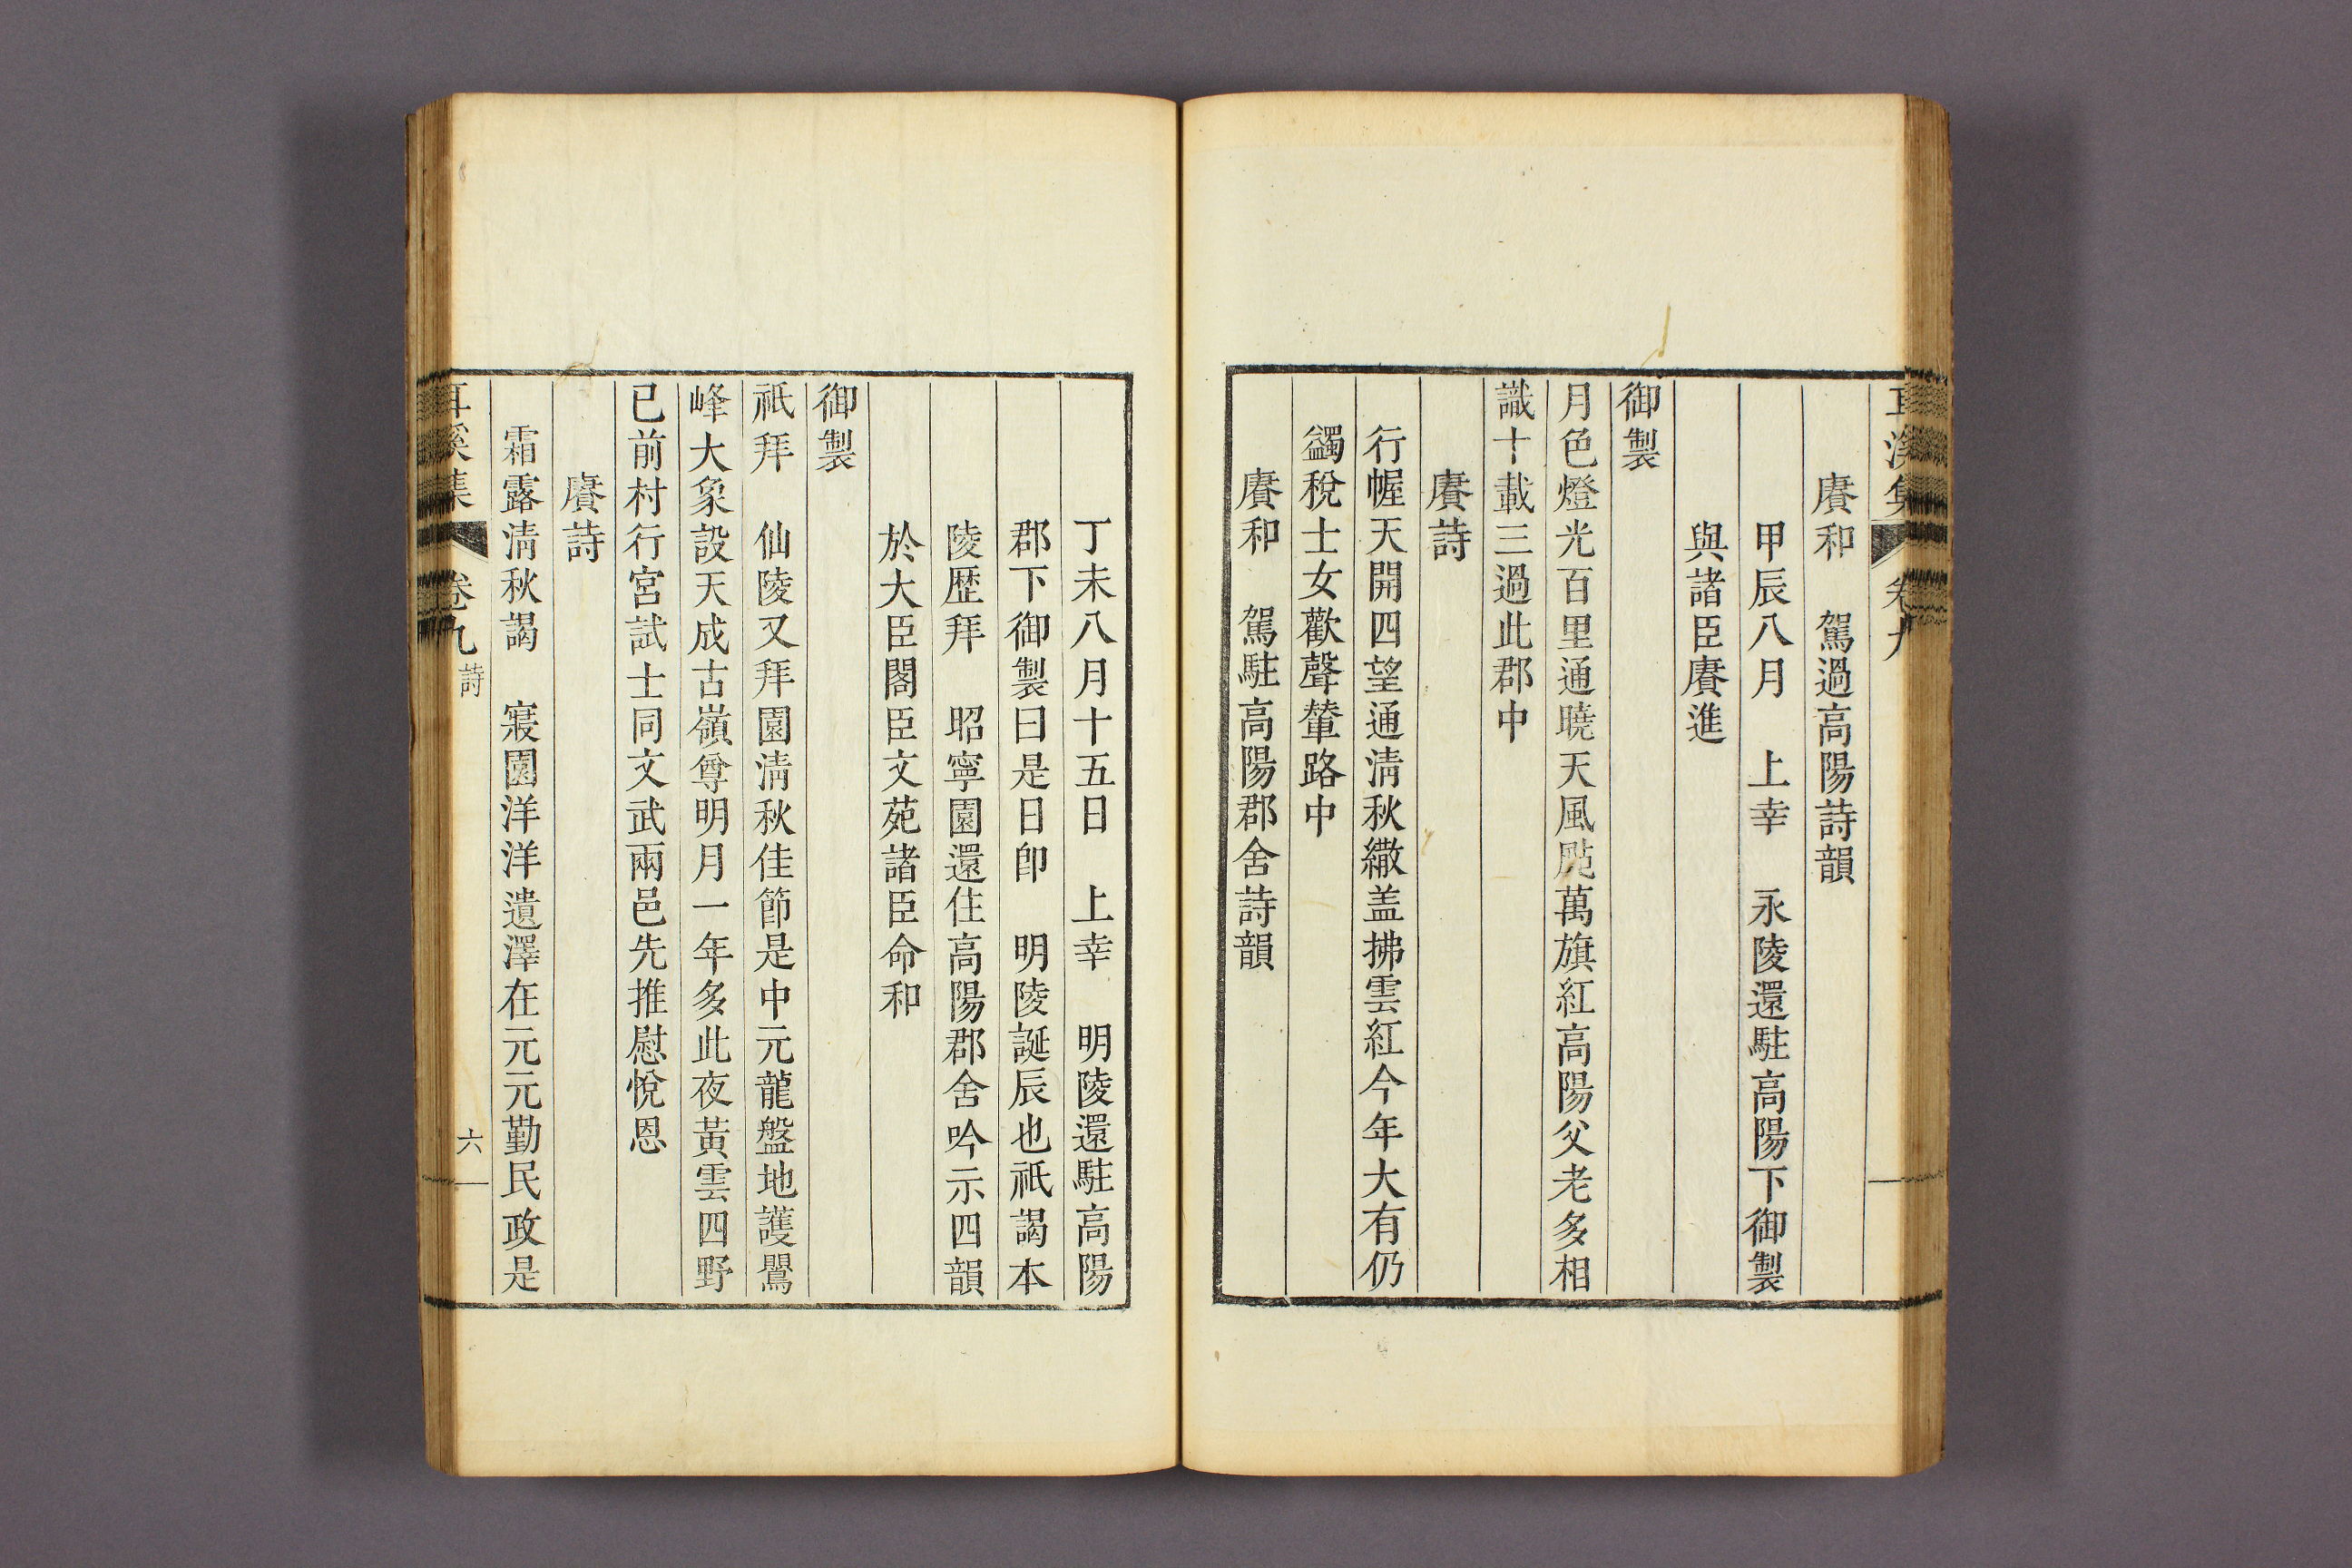 耳溪集 卷九
賡和 駕過高陽詩韻
甲辰八月 上幸 永陵還駐高陽下御製
與諸臣賡進
御製
月色燈光百里通曉天風颭萬旗紅高陽父老多相
識十載三過此郡中
賡詩
行幄天開四望通淸秋繖盖拂雲紅今年大有仍
蠲稅士女歡聲輦路中
賡和 駕駐高陽郡舍詩韻
丁未八月十五日 上幸 明陵還駐高陽
郡下御製曰是日卽 明陵誕辰也祇謁本
陵歷拜 昭寧園還住高陽郡舍吟示四韻
於大臣閣臣文苑諸臣命和
御製
祇拜 仙陵又拜園淸秋佳節是中元龍盤地護鷽
峰大象設天成古嶺尊明月一年多此夜黃雲四野
已前村行宮試士同文武兩邑先推慰悅恩
賡詩
霜露淸秋謁 寢園洋洋遺澤在元元勤民政是
耳溪集 卷九 詩 六